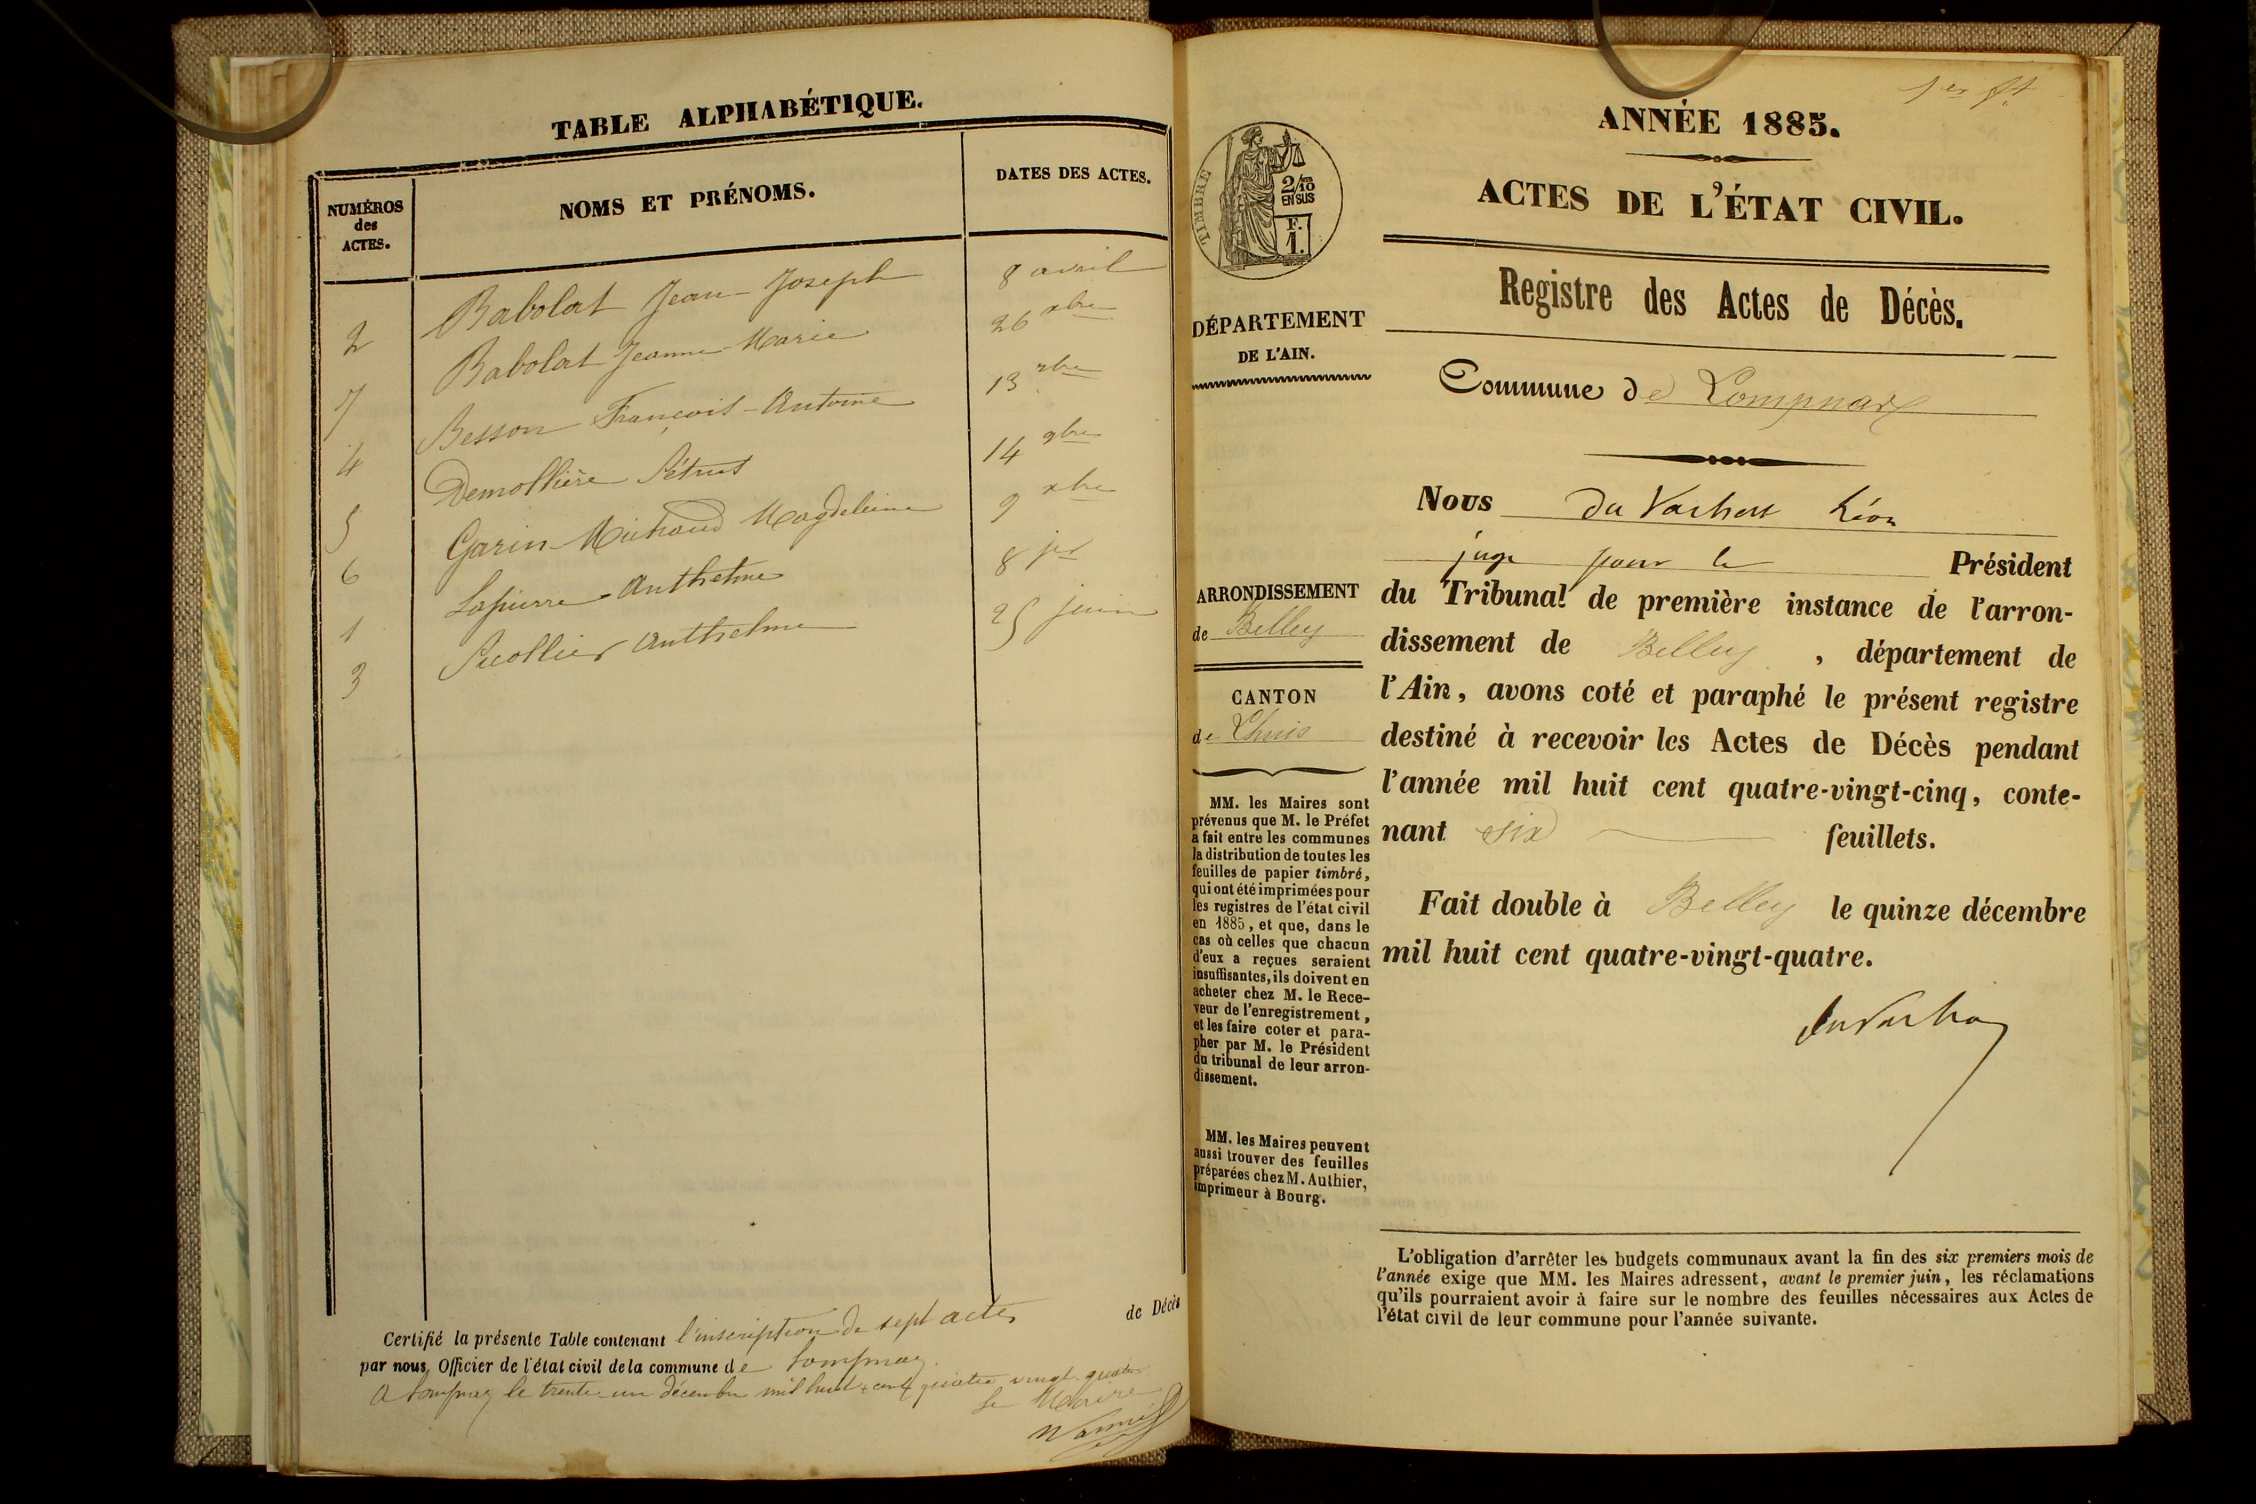 TABLE ALPHABÉTIQUE.
NUMÉROS
des
ACTES.
NOMS ET PRÉNOMS.
DATES DES ACTES.
2 Babolat Jean-Joseph 8 avril
7 Babolat Jeanne-Marie 26 xbre
4 Besson François-Antoine 13 7bre
5 Demollière Pétrus 14 9bre
6 Garin-Michaud Magdeleine 9 xbre
1 Lapierre Anthelme 8 jer
3 Picollier Anthelme 25 juin
Certifié la présente Table contenant l'inscription de sept actes de Décès
par nous, Officier de l'état civil de la commune de Lompnaz
A Lompnaz le trente-un décembre mil huit cent quatre vingt quatre
Le Maire
1er ft
ANNÉE 1885.
ACTES DE L'ÉTAT CIVIL.
Registre des Actes de Décès.
TIMBRE
2/10
EN SUS
F.
1.
DÉPARTEMENT
DE L'AIN.
Commune de Lompnaz
Nous du Vachat Léon
juge pour le Président
du Tribunal de première instance de l'arron-
dissement de Belley, département de
l'Ain, avons coté et paraphé le présent registre
destiné à recevoir les Actes de Décès pendant
l'année mil huit cent quatre-vingt-cinq, conte-
nant six feuillets.
Fait double à Belley le quinze décembre
mil huit cent quatre-vingt-quatre.
duVachat
ARRONDISSEMENT
de Belley
CANTON
de Lhuis
MM. les Maires sont
prévenus que M. le Préfet
a fait entre les communes
la distribution de toutes les
feuilles de papier timbré,
qui ont été imprimées pour
les registres de l'état civil
en 1885, et que, dans le
cas où celles que chacun
d'eux a reçues seraient
insuffisantes, ils doivent en
acheter chez M. le Rece-
veur de l'enregistrement,
et les faire coter et para-
pher par M. le Président
du tribunal de leur arron-
dissement.
MM. les Maires peuvent
aussi trouver des feuilles
préparées chez M. Authier,
imprimeur à Bourg.
L'obligation d'arrêter les budgets communaux avant la fin des six premiers mois de
l'année exige que MM. les Maires adressent, avant le premier juin, les réclamations
qu'ils pourraient avoir à faire sur le nombre des feuilles nécessaires aux Actes de
l'état civil de leur commune pour l'année suivante.